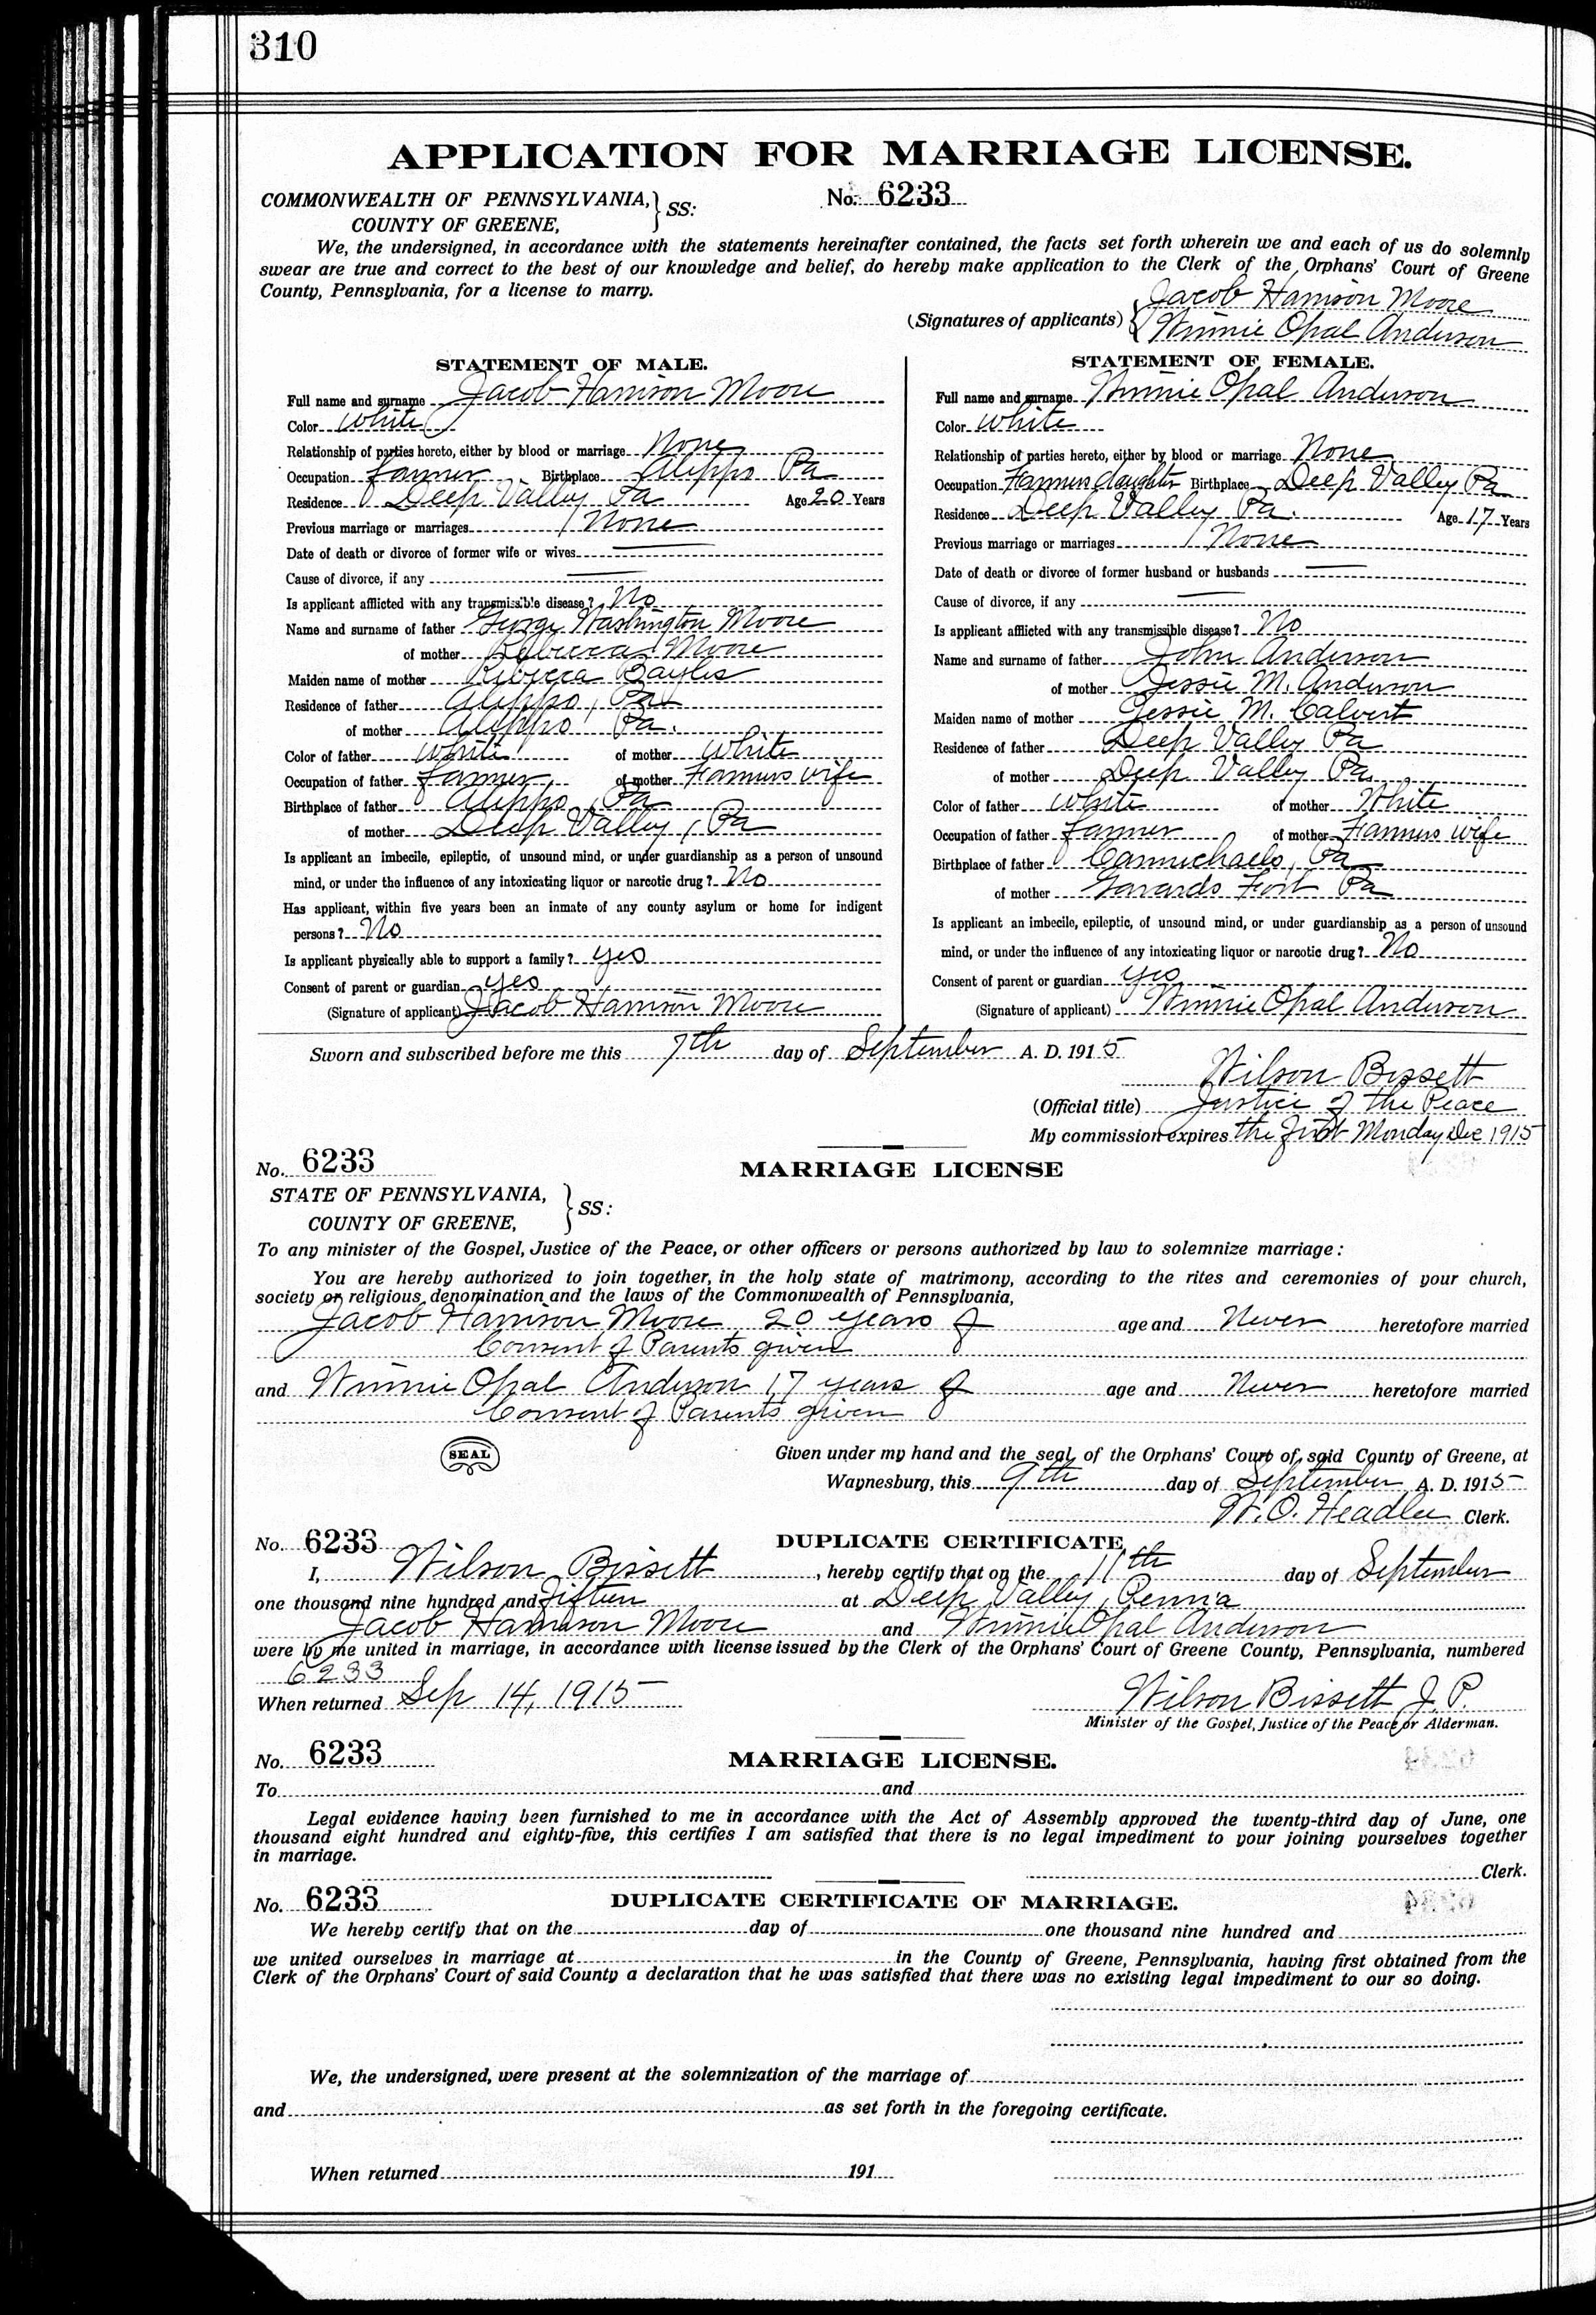 310
APPLICATION FOR MARRIAGE LICENSE.
COMMONWEALTH OF PENNSYLVANIA, } SS: No. 6233
COUNTY OF GREENE,
We, the undersigned, in accordance with the statements hereinafter contained, the facts set forth wherein we and each of us do solemnly
swear are true and correct to the best of our knowledge and belief, do hereby make application to the Clerk of the Orphans' Court of Greene
County, Pennsylvania, for a license to marry.
(Signatures of applicants) { Jacob Harrison Moore
Winnie Opal Anderson
STATEMENT OF MALE.
Full name and surname Jacob Harrison Moore
Color White
Relationship of parties hereto, either by blood or marriage None
Occupation farmer Birthplace Aleppo Pa
Residence Deep Valley Pa Age 20 Years
Previous marriage or marriages None
Date of death or divorce of former wife or wives
Cause of divorce, if any
Is applicant afflicted with any transmissible disease? No
Name and surname of father George Washington Moore
of mother Rebecca Moore
Maiden name of mother Rebecca Bayles
Residence of father Aleppo, Pa
of mother Aleppo Pa.
Color of father white of mother white
Occupation of father farmer of mother Farmers wife
Birthplace of father Aleppo, Pa
of mother Deep Valley, Pa
Is applicant an imbecile, epileptic, of unsound mind, or under guardianship as a person of unsound
mind, or under the influence of any intoxicating liquor or narcotic drug? No
Has applicant, within five years been an inmate of any county asylum or home for indigent
persons? No
Is applicant physically able to support a family? yes
Consent of parent or guardian yes
(Signature of applicant) Jacob Harrison Moore
STATEMENT OF FEMALE.
Full name and surname Winnie Opal Anderson
Color White
Relationship of parties hereto, either by blood or marriage None
Occupation Farmers daughter Birthplace Deep Valley Pa
Residence Deep Valley Pa. Age 17 Years
Previous marriage or marriages None
Date of death or divorce of former husband or husbands
Cause of divorce, if any
Is applicant afflicted with any transmissible disease? No
Name and surname of father John Anderson
of mother Jessie M. Anderson
Maiden name of mother Jessie M. Calvert
Residence of father Deep Valley Pa
of mother Deep Valley Pa.
Color of father white of mother White
Occupation of father farmer of mother Farmers wife
Birthplace of father Carmichaels, Pa
of mother Garards Fort Pa
Is applicant an imbecile, epileptic, of unsound mind, or under guardianship as a person of unsound
mind, or under the influence of any intoxicating liquor or narcotic drug? No
Consent of parent or guardian yes
(Signature of applicant) Winnie Opal Anderson
Sworn and subscribed before me this 7th day of September A. D. 1915
Wilson Bissett
(Official title) Justice of the Peace
My commission expires the first Monday Dec 1915
No. 6233 MARRIAGE LICENSE
STATE OF PENNSYLVANIA, } SS:
COUNTY OF GREENE,
To any minister of the Gospel, Justice of the Peace, or other officers or persons authorized by law to solemnize marriage:
You are hereby authorized to join together, in the holy state of matrimony, according to the rites and ceremonies of your church,
society or religious denomination and the laws of the Commonwealth of Pennsylvania,
Jacob Harrison Moore 20 years of age and Never heretofore married
Consent of Parents given
and Winnie Opal Anderson 17 years of age and Never heretofore married
Consent of Parents given
SEAL Given under my hand and the seal of the Orphans' Court of said County of Greene, at
Waynesburg, this 9th day of September A. D. 1915
W. O. Headlee Clerk.
No. 6233 DUPLICATE CERTIFICATE
I, Wilson Bissett, hereby certify that on the 11th day of September
one thousand nine hundred and fifteen at Deep Valley, Penna
Jacob Harrison Moore and Winnie Opal Anderson
were by me united in marriage, in accordance with license issued by the Clerk of the Orphans' Court of Greene County, Pennsylvania, numbered
6233
When returned Sep 14, 1915 Wilson Bissett J. P.
Minister of the Gospel, Justice of the Peace or Alderman.
No. 6233 MARRIAGE LICENSE.
To and
Legal evidence having been furnished to me in accordance with the Act of Assembly approved the twenty-third day of June, one
thousand eight hundred and eighty-five, this certifies I am satisfied that there is no legal impediment to your joining yourselves together
in marriage.
Clerk.
No. 6233 DUPLICATE CERTIFICATE OF MARRIAGE.
We hereby certify that on the day of one thousand nine hundred and
we united ourselves in marriage at in the County of Greene, Pennsylvania, having first obtained from the
Clerk of the Orphans' Court of said County a declaration that he was satisfied that there was no existing legal impediment to our so doing.
We, the undersigned, were present at the solemnization of the marriage of
and as set forth in the foregoing certificate.
When returned 191